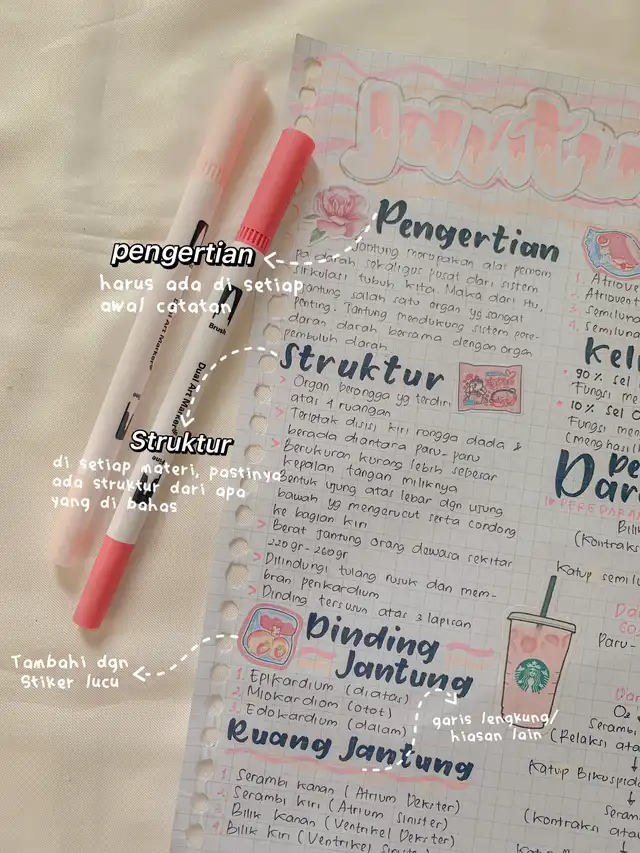 Jantu
Pengertian
Jantung merupakan alat pemom
pa darah sekaligus pusat dari sistem
sirkulasi tubuh kita. Maka dari itu,
jantung salah satu organ yg sangat
penting. Jantung mendukung sistem pere-
daran darah bersama dengan organ
pembuluh darah
Struktur
> Organ berongga yg terdiri
atas 4 ruangan
> Terletak disisi kiri rongga dada &
berada diantara paru-paru
> Berukuran kurang lebih sebesar
kepalan tangan miliknya
Bentuk ujung atas lebar dgn ujung
bawah yg mengerucut serta condong
ke bagian kiri
> Berat jantung orang dewasa sekitar
220 gr - 260 gr
> Dilindungi tulang rusuk dan mem-
bran perikardium
> Dinding tersusun atas 3 lapisan
Dinding
Jantung
1. Epikardium (diatas)
2. Miokardiom (otot)
3. Edokardium (dalam)
Ruang Jantung
1. Serambi kanan (Atrium Dekster)
2. Serambi kiri (Atrium Sinister)
3. Bilik kanan (Ventrikel Dekster)
4. Bilik kiri (Ventrikel Sinist
1. Atriove
2. Atriovent
3. Semiluna
4. Semiluna
Kel
90% sel
Fungsi me
10% sel
Fungsi men
(menghasil
De
Dar
Bilik
(kontraks
Katup semil
Da
Paru-
Dar
O2
Seramb
(Relaksi ata
Katup Bikuspida
Seram
(kontraksi ata
pengertian
harus ada di setiap
awal catatan
Struktur
di setiap materi, pastinya
ada struktur dari apa
yang di bahas
Tambahi dgn
Stiker lucu
garis lengkung/
hiasan lain
Brush
Dual Art Markers
Art Markers